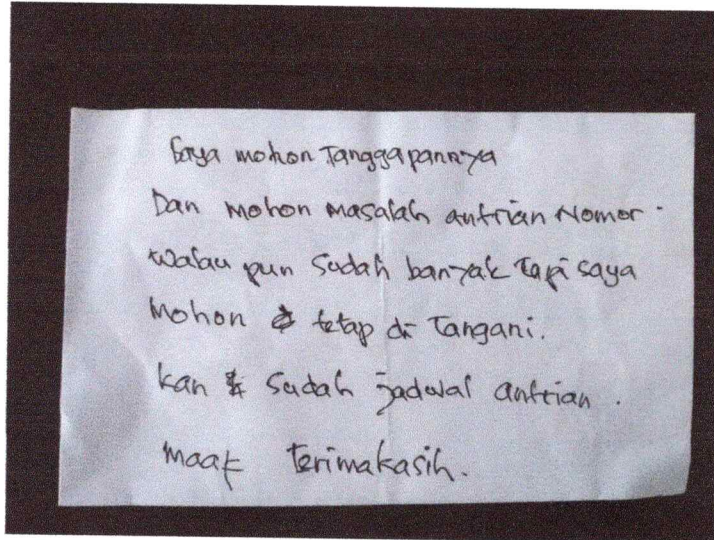 Saya mohon Tanggapannya
Dan mohon masalah antrian Nomor.
walau pun sudah banyak tapi saya
mohon tetap di Tangani.
kan sudah jadwal antrian.
maaf terimakasih.